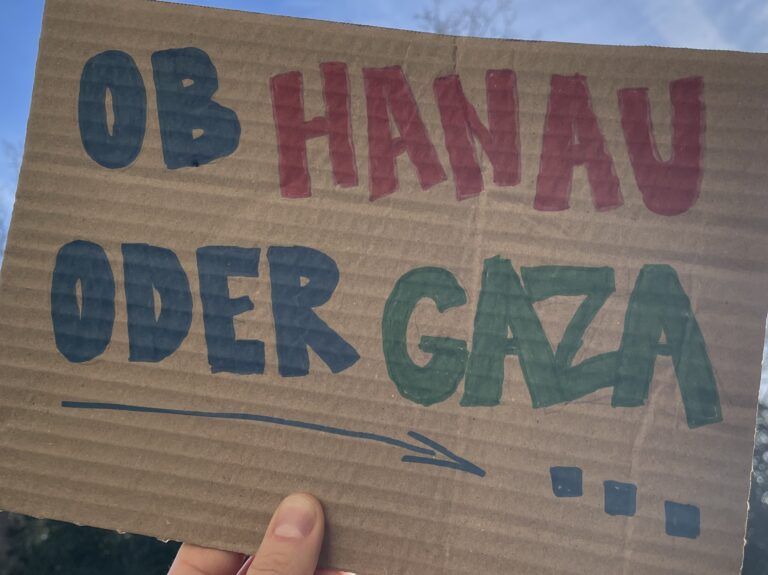 OB HANAU
ODER GAZA
...